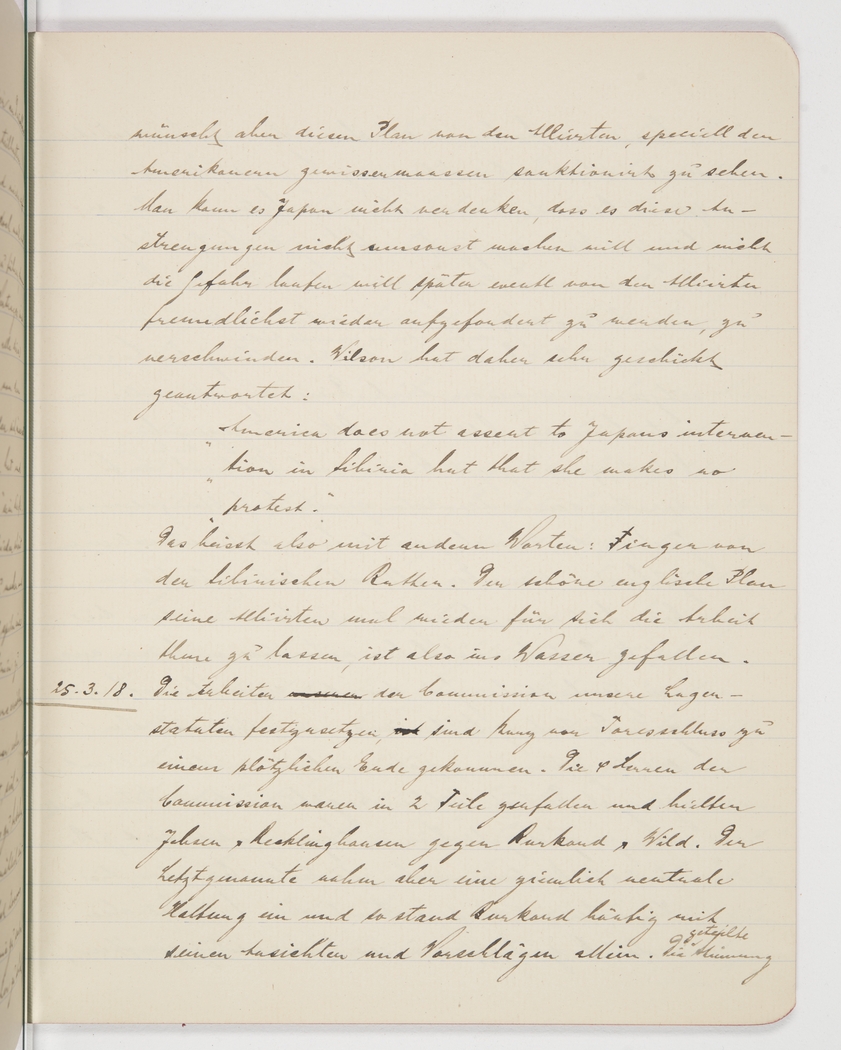 wünscht aber diesen Plan von den Alliirten, speciell den
Amerikanern gewissermaassen sanktionirt zu sehen.
Man kann es Japan nicht verdenken, dass es diese An-
strengungen nicht umsonst machen will und nicht
die Gefahr laufen will später eventl von den Alliirten
freundlichst wieder aufgefordert zu werden, zu
verschwinden. Wilson hat daher sehr geschickt
geantwortet:
"America does not assent to Japans interven-
" tion in Sibiria but that she makes no
" protest."
Das heisst also mit andern Worten: Finger von
den sibirischen Rubken. Der schöne englische Plan
seine Alliirten mal wieder für sich die Arbeit
thune zu lassen, ist also ins Wasser gefallen.
25.3.18. Die Arbeiten der Commission unsere Lagen-
statuten festzusetzen, sind kurz vor Toresschluss zu
einem plötzlichen Ende gekommen. Die 4 Herren der
Commission waren in 2 Teile zerfallen und hielten
Jebsen & Recklinghausen gegen Burkard & Wild. Der
Letztgenannte nahm aber eine ziemlich neutrale
Haltung ein und so stand Burkard häufig mit
seinen Ansichten und Vorschlägen allein. Die geteilte Stimmung